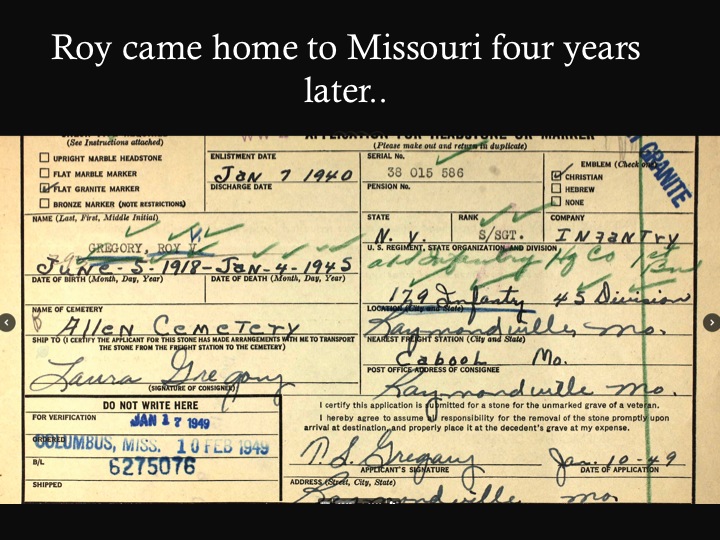 Roy came home to Missouri four years
later..
APPLICATION FOR HEADSTONE OR MARKER
(See Instructions attached)
(Please make out and return in duplicate)
UPRIGHT MARBLE HEADSTONE
FLAT MARBLE MARKER
FLAT GRANITE MARKER
BRONZE MARKER (NOTE RESTRICTIONS)
ENLISTMENT DATE
JAN 7 1940
DISCHARGE DATE
SERIAL No.
38 015 586
PENSION No.
EMBLEM (Check one)
CHRISTIAN
HEBREW
NONE
GRANITE
NAME (Last, First, Middle Initial)
GREGORY, ROY V.
STATE
N. Y.
RANK
S/SGT.
COMPANY
INFANTRY
U. S. REGIMENT, STATE ORGANIZATION, AND DIVISION
Hq Co 1st
Bn
JUNE-5-1918-JAN-4-1945
DATE OF BIRTH (Month, Day, Year)
DATE OF DEATH (Month, Day, Year)
179 Infantry 45 Division
NAME OF CEMETERY
Allen Cemetery
LOCATION (City and State)
Raymondville Mo.
SHIP TO (I CERTIFY THE APPLICANT FOR THIS STONE HAS MADE ARRANGEMENTS WITH ME TO TRANSPORT
THE STONE FROM THE FREIGHT STATION TO THE CEMETERY)
NEAREST FREIGHT STATION (City and State)
Cabool Mo.
Laura Gregory
(SIGNATURE OF CONSIGNEE)
POST OFFICE ADDRESS OF CONSIGNEE
Raymondville Mo.
DO NOT WRITE HERE
FOR VERIFICATION
JAN 17 1949
ORDERED
COLUMBUS, MISS. 10 FEB 1949
B/L
6275076
SHIPPED
I certify this application is submitted for a stone for the unmarked grave of a veteran.
I hereby agree to assume all responsibility for the removal of the stone promptly upon
arrival at destination, and properly place it at the decedent's grave at my expense.
Gregory
Jan. 10-49
APPLICANT'S SIGNATURE
DATE OF APPLICATION
ADDRESS (Street, City, State)
Raymondville Mo